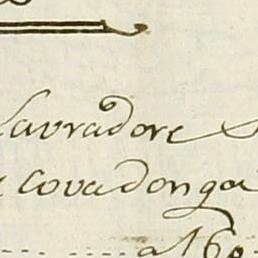 Lavradore
Covadonga
a 160